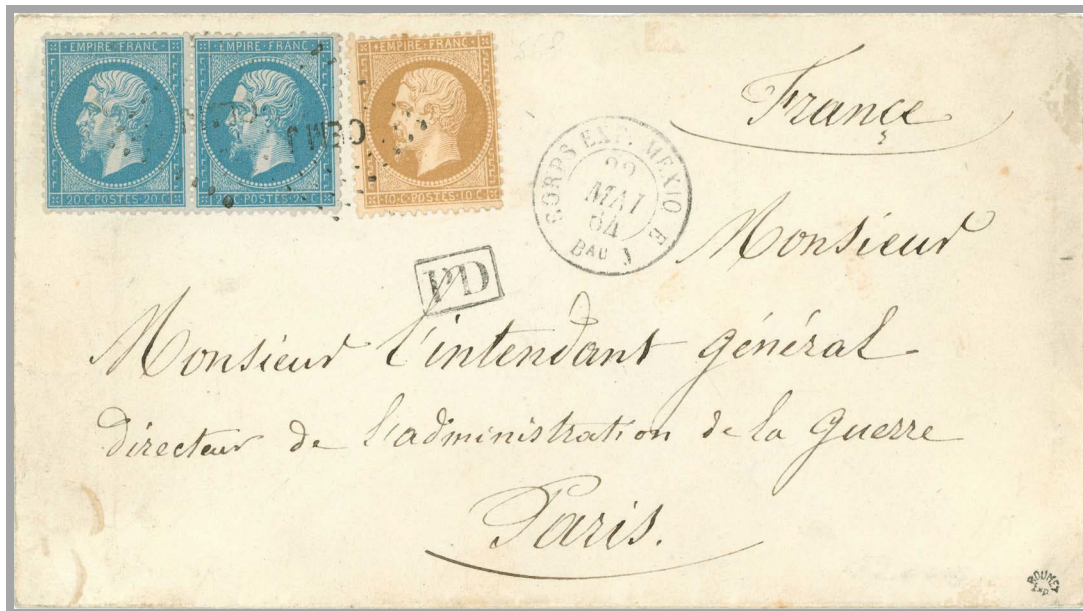 EMPIRE FRANC EMPIRE FRANC EMPIRE FRANC
20 C POSTES 20 C 10 C POSTES 10 C
CEM J
CORPS EXP. MEXIQ. E
22
MAI
64
Bau J
PD
France
Monsieur
Monsieur l'intendant général
directeur de l'administration de la Guerre
Paris.
ROUMET
Exp.